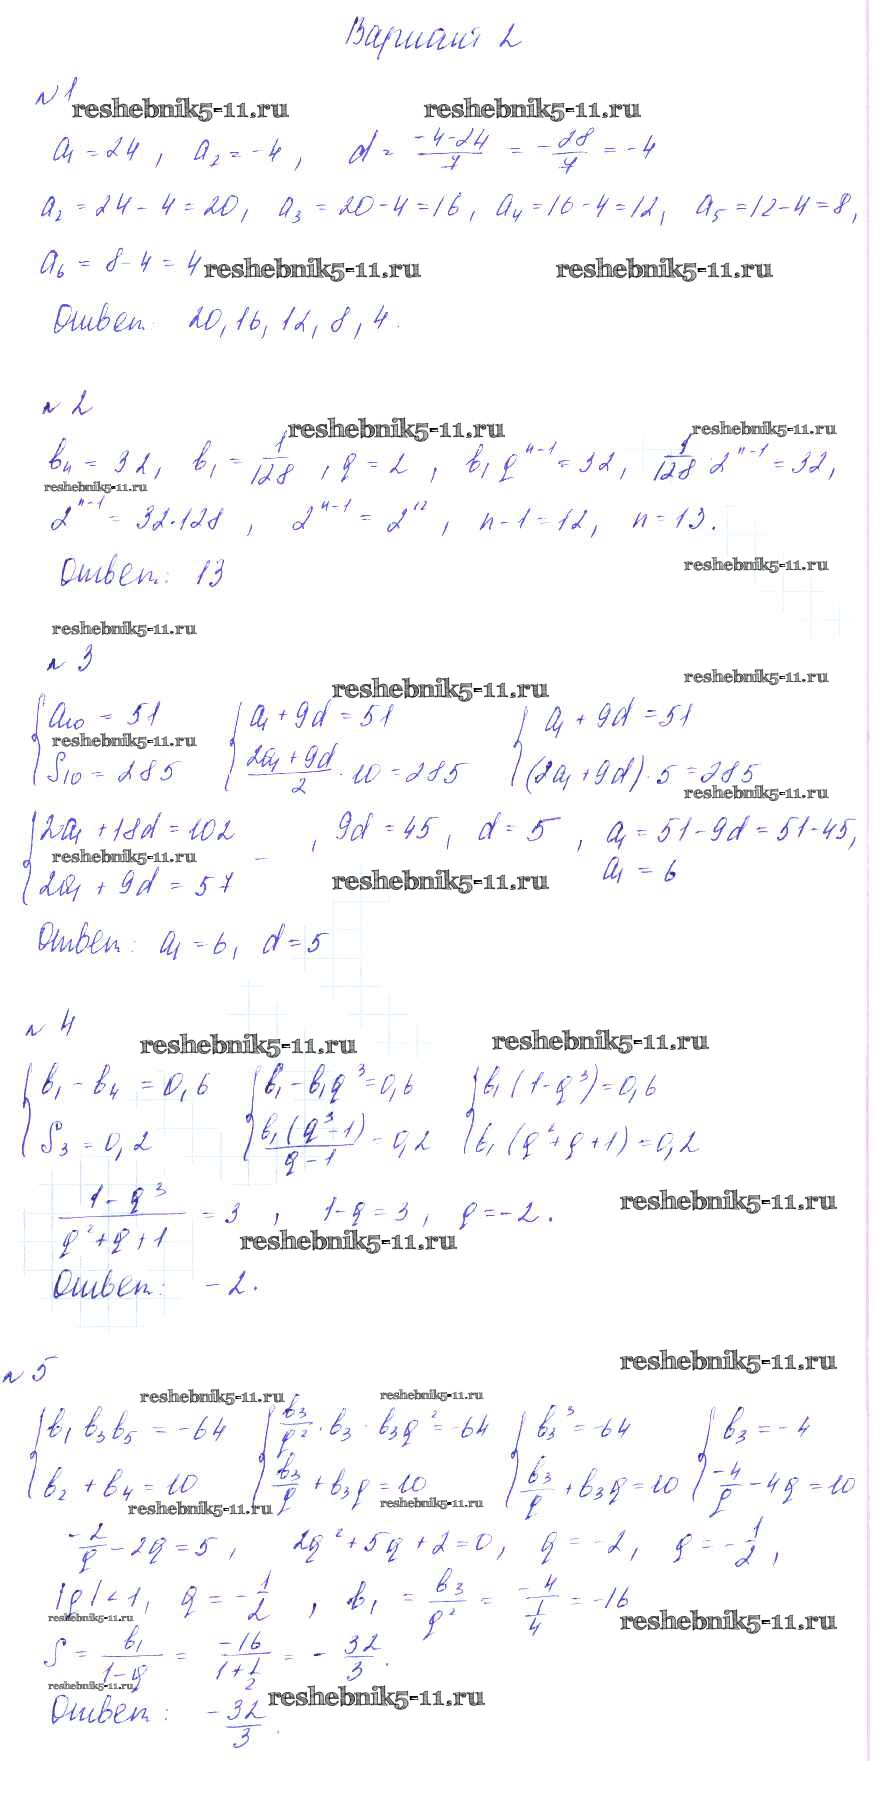 Вариант 2
№1
reshebnik5-11.ru reshebnik5-11.ru
a₁ = 24, a₂ = -4, d = (-4-24)/7 = -28/7 = -4
a₂ = 24 - 4 = 20, a₃ = 20 - 4 = 16, a₄ = 16 - 4 = 12, a₅ = 12 - 4 = 8,
a₆ = 8 - 4 = 4 reshebnik5-11.ru reshebnik5-11.ru
Ответ: 20, 16, 12, 8, 4.
№2
reshebnik5-11.ru reshebnik5-11.ru
bₙ = 32, b₁ = 1/128, q = 2, b₁qⁿ⁻¹ = 32, 1/128 · 2ⁿ⁻¹ = 32,
reshebnik5-11.ru
2ⁿ⁻¹ = 32·128, 2ⁿ⁻¹ = 2¹², n-1 = 12, n = 13.
Ответ: 13 reshebnik5-11.ru
reshebnik5-11.ru
№3
reshebnik5-11.ru reshebnik5-11.ru
{a₁₀ = 51 {a₁ + 9d = 51 {a₁ + 9d = 51
reshebnik5-11.ru
S₁₀ = 285 (2a₁ + 9d)/2 · 10 = 285 (2a₁ + 9d)·5 = 285
reshebnik5-11.ru
{2a₁ + 18d = 102 - , 9d = 45, d = 5, a₁ = 51 - 9d = 51 - 45,
reshebnik5-11.ru
2a₁ + 9d = 57 reshebnik5-11.ru a₁ = 6
Ответ: a₁ = 6, d = 5
№4
reshebnik5-11.ru reshebnik5-11.ru
{b₁ - b₄ = 0,6 {b₁ - b₁q³ = 0,6 {b₁(1-q³) = 0,6
S₃ = 0,2 b₁(q³-1)/(q-1) = 0,2 b₁(q²+q+1) = 0,2
(1-q³)/(q²+q+1) = 3, 1-q = 3, q = -2. reshebnik5-11.ru
reshebnik5-11.ru
Ответ: -2.
№5 reshebnik5-11.ru
reshebnik5-11.ru reshebnik5-11.ru
{b₁b₃b₅ = -64 {b₃/q² · b₃ · b₃q² = -64 {b₃³ = -64 {b₃ = -4
b₂ + b₄ = 10 b₃/q + b₃q = 10 b₃/q + b₃q = 10 -4/q - 4q = 10
reshebnik5-11.ru reshebnik5-11.ru
-2/q - 2q = 5, 2q² + 5q + 2 = 0, q = -2, q = -1/2,
|q| < 1, q = -1/2, b₁ = b₃/q² = -4/(1/4) = -16
reshebnik5-11.ru reshebnik5-11.ru
S = b₁/(1-q) = -16/(1+1/2) = -32/3.
reshebnik5-11.ru reshebnik5-11.ru
Ответ: -32/3.